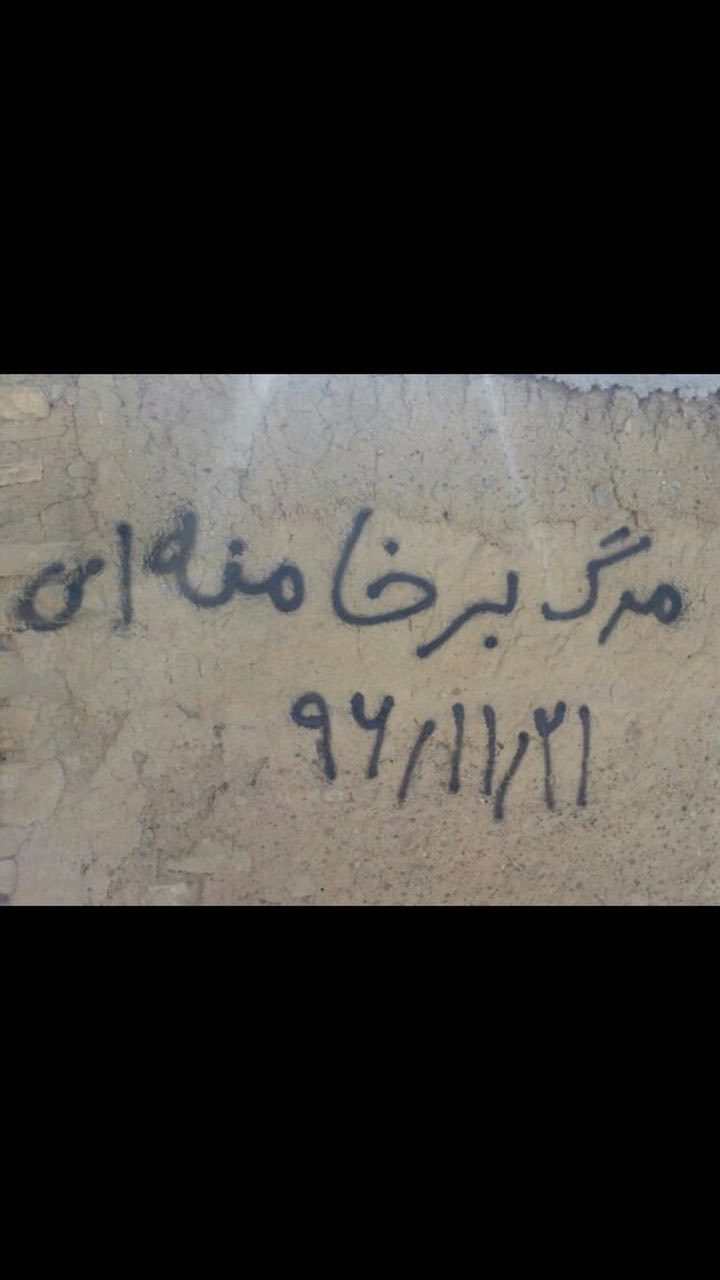 مرگ بر خامنه ای
۹۶/۱۱/۲۱